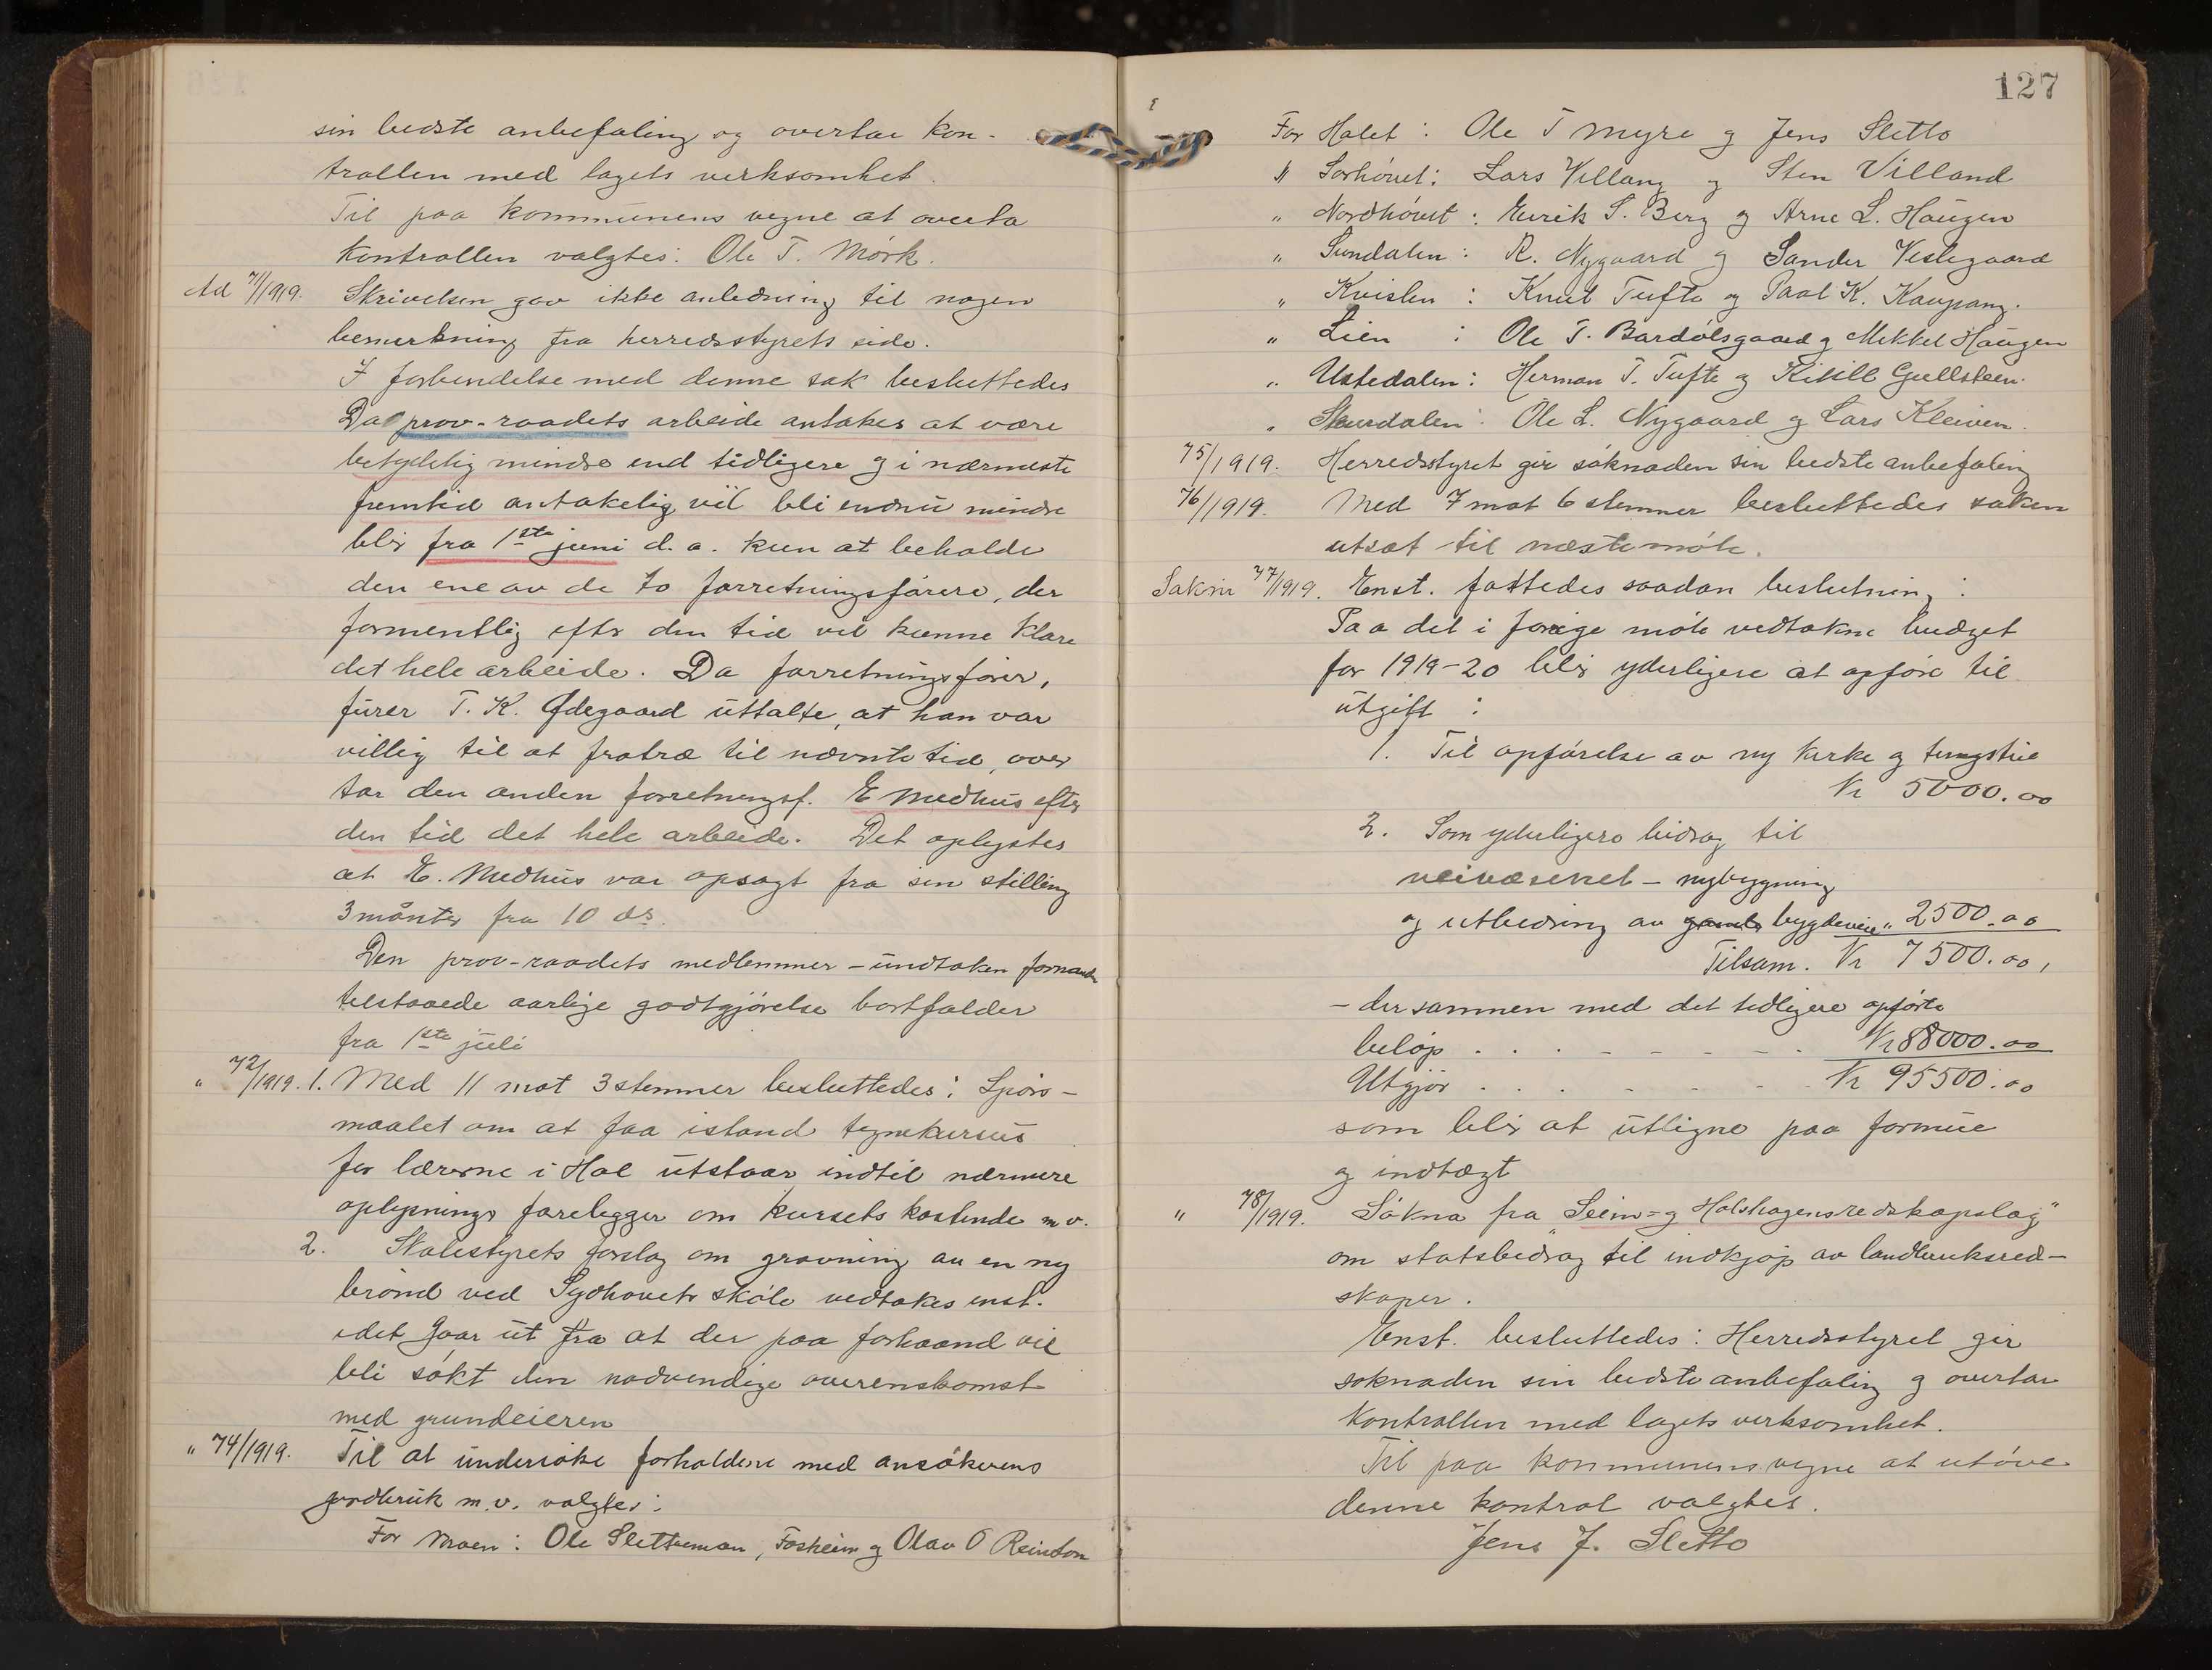 sin bedste anbefaling og overtar kon-
trollen med lagets verksomhet.
Til paa kommunens vegne at overta
kontrollen valgtes: Ole T. Mørk.
Ad 71/1919. Skrivelsen gav ikke anledning til nogen
bemerkning fra herredsstyrets side.
I forbindelse med denne sak besluttedes
Da prov-raadets arbeide antakes at være
betydelig mindre end tidligere og i nærmeste
fremtid antakelig vil bli endnu mindre
blir fra 1ste juni d.a. kun at beholde
den ene av de to forretningsførere, der
formentlig efter den tid vil kunne klare
det hele arbeide. Da forretningsfører,
furer T. K. Ødegaard uttalte, at han var
villig til at fratræ til nævnte tid, over
tar den anden forretningsf. E Medhus efter
den tid det hele arbeide. Det oplystes
at E. Medhus var opsagt fra sin stilling
3 månter fra 10 ds.
Den prov-raadets medlemmer - undtaken formand
tilstaaede aarlige godtgjørelse bortfalder
fra 1ste juli
" 72/1919. 1. Med 11 mot 3 stemmer besluttedes: Spørs-
maalet om at faa istand tegnekursus
for lærerne i Hol utstaar indtil nærmere
oplysnings forelegger om kursets kostende m.v.
2. Skolestyrets forslag om gravning av en ny
brønd ved Sydhovets skole vedtakes enst.
idet gaar ut fra at der paa forhaand vil
bli søkt den nødvendige overenskomst
med grundeieren
" 74/1919. Til at undersøke forholdene med ansøkerens
jordbruk m.v. valgtes:
For Moen: Ole Sletteman, Fosheim og Olav O Reinton
127
For Holet: Ole T Myre og Jens Sletto
" Sørhøvet: Lars Villang og Sten Villand
" Nordhøvet: Eirik S. Berg og Arne L. Haugen
" Sundalen: R. Nygaard og Sander Veslegaard
" Kvislen: Knut Tufte og Paal K. Kaupang.
" Lien: Ole T. Bardølsgaard og Mekkel Haugen
" Ustedalen: Herman T. Tufte og Kitill Gullsteen.
" Skurdalen: Ole L. Nygaard og Lars Kleiven.
75/1919. Herredsstyret gir søknaden sin bedste anbefaling
76/1919. Med 7 mot 6 stemmer besluttedes saken
utsat til næste møte.
Saknr 77/1919. Enst. fattedes saadan beslutning:
Paa det i forrige møte vedtakne budget
for 1919-20 blir yderligere at opføre til
utgift:
1. Til opførelse av ny kirke og tingstue
Kr 5000.00
2. Som yderligere bidrag til
veivæsenet - nybygning
og utbedring av gamle bygdeveie " 2500.00
Tilsam. Kr 7500.00,
- der sammen med det tidligere opførte
beløp . . . - - - - - Kr 88000.00
Utgjør . . . - - - - Kr 95500.00
som blir at utligne paa formue
og indtægt
" 78/1919. Søkna fra "Seim- og Holshagens redskapslag"
om statsbidrag til indkjøp av landbruksred-
skaper.
Enst. besluttedes: Herredsstyret gir
søknaden sin bedste anbefaling og overtar
kontrollen med lagets verksomhet.
Til paa kommunens vegne at utøve
denne kontrol valgtes.
Jens J. Sletto